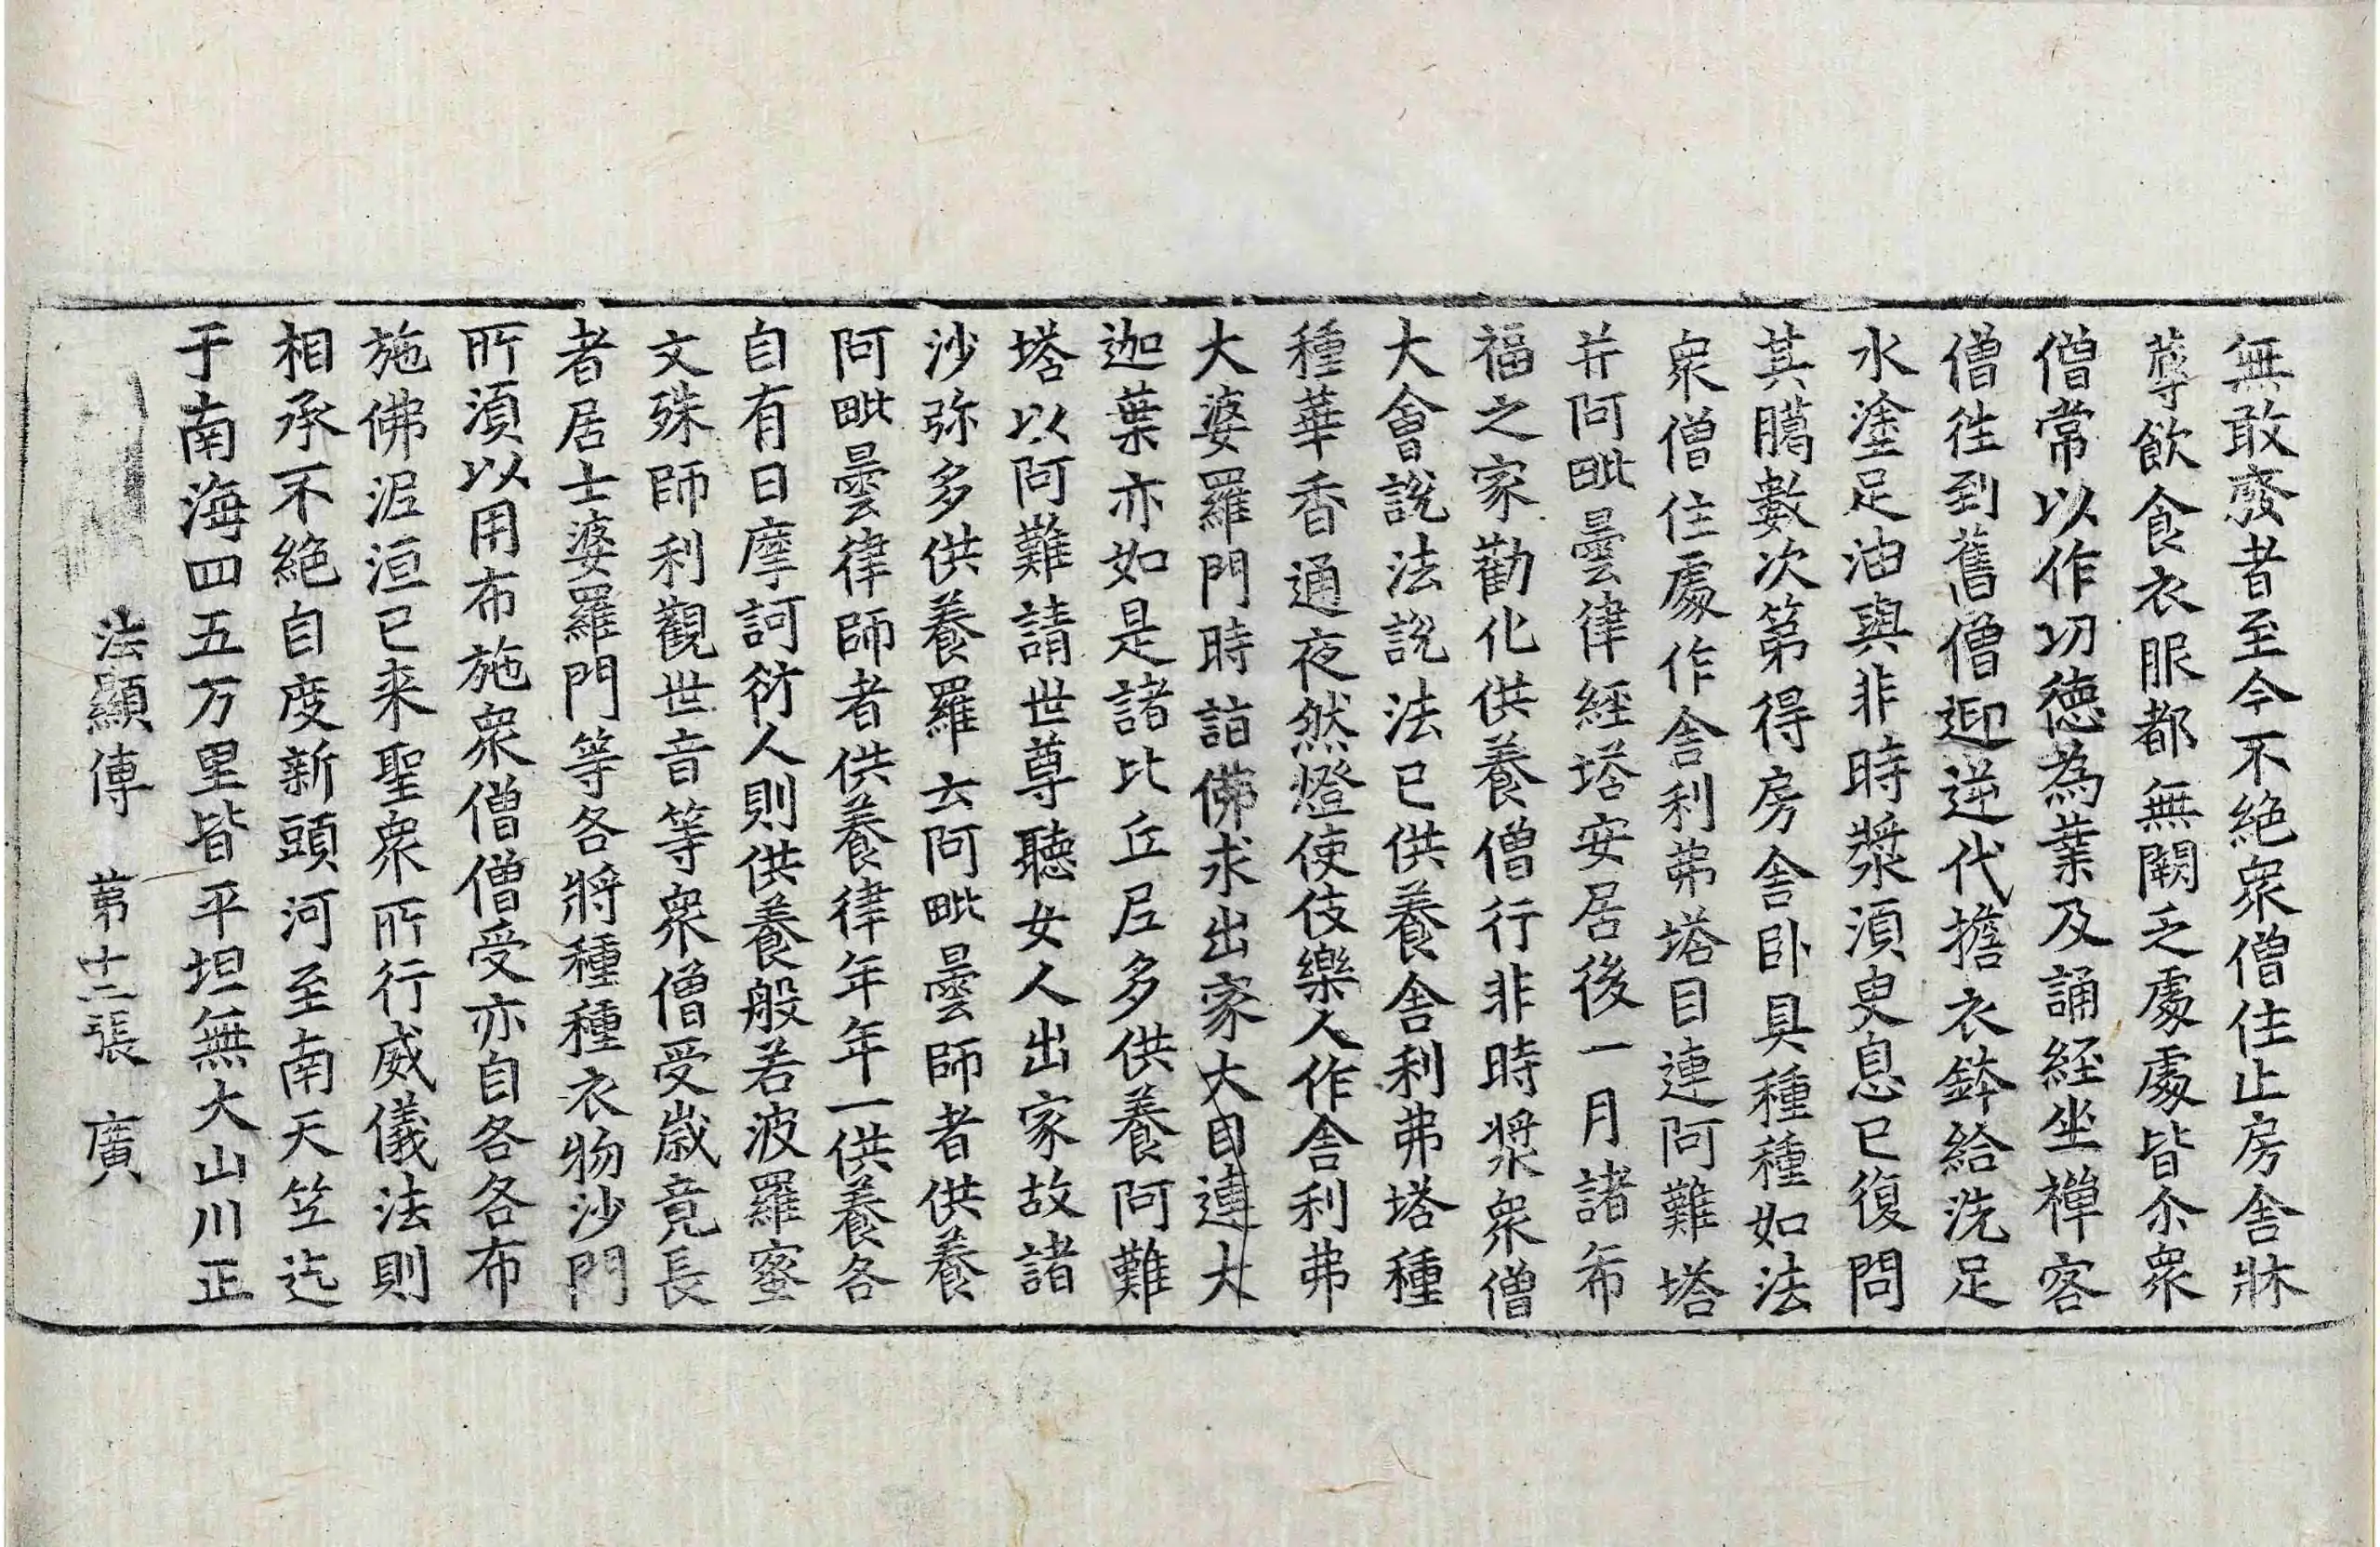 無敢廢者至今不絶衆僧住止房舍牀
蓐飲食衣服都無闕乏處處皆尒衆
僧常以作㓛德為業及誦經坐禅客
僧往到舊僧迎逆代擔衣鉢給洗足
水塗足油與非時漿湏臾息已復問
其臈數次第得房舍卧具種種如法
衆僧住處作舍利弗塔目連阿難塔
并阿毗曇律經塔安居後一月諸希
福之家勸化供養僧行非時漿衆僧
大會説法説法已供養舍利弗塔種
種華香通夜然燈使伎樂人作舍利弗
大婆羅門時詣佛求出家大目連大
迦葉亦如是諸比丘尼多供養阿難
塔以阿難請世尊聽女人出家故諸
沙弥多供養羅云阿毗曇師者供養
阿毗曇律師者供養律年年一供養各
自有日摩訶衍人則供養般若波羅蜜
文殊師利觀世音等衆僧受歲竟長
者居士婆羅門等各將種種衣物沙門
所湏以用布施衆僧僧受亦自各各布
施佛泥洹已来聖衆所行威儀法則
相承不絶自度新頭河至南天笁迄
于南海四五万里皆平坦無大山川正
法顯傳 苐十二張 廣